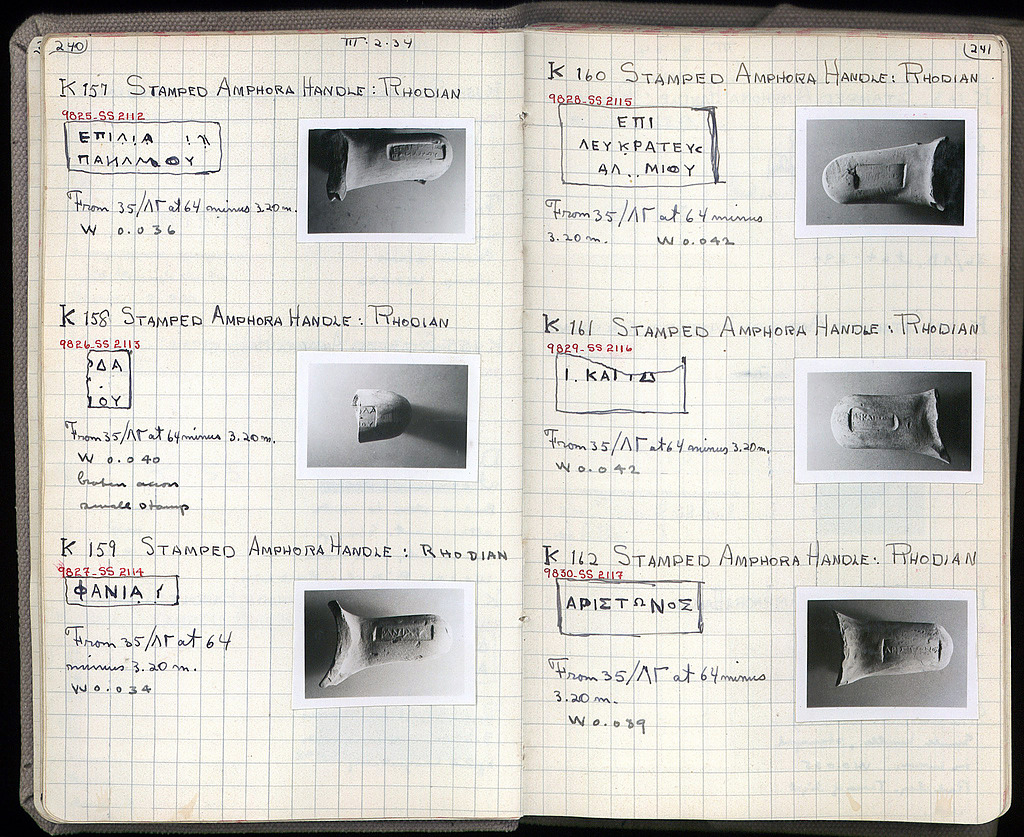 240
III·2·34
K 157 STAMPED AMPHORA HANDLE: RHODIAN
9825-SS 2112
From 35/ΛΓ at 64 minus 3.20 m.
W 0.036
K 158 STAMPED AMPHORA HANDLE: RHODIAN
9826-SS 2113
ΔΑ
.
ΙΟΥ
From 35/ΛΓ at 64 minus 3.20 m.
W 0.040
broken across
small stamp
K 159 STAMPED AMPHORA HANDLE: RHODIAN
9827-SS 2114
ΦΑΝΙΑ
From 35/ΛΓ at 64
minus 3.20 m.
W 0.034
241
K 160 STAMPED AMPHORA HANDLE: RHODIAN
9828-SS 2115
ΕΠΙ
ΛΕΥΚΡΑΤΕΥϹ
ΑΛ..ΜΙΟΥ
From 35/ΛΓ at 64 minus
3.20 m. W 0.042
K 161 STAMPED AMPHORA HANDLE: RHODIAN
9829-SS 2116
From 35/ΛΓ at 64 minus 3.20 m.
W 0.042
K 162 STAMPED AMPHORA HANDLE: RHODIAN
9830-SS 2117
ΑΡΙΣΤΩΝΟΣ
From 35/ΛΓ at 64 minus
3.20 m.
W 0.039